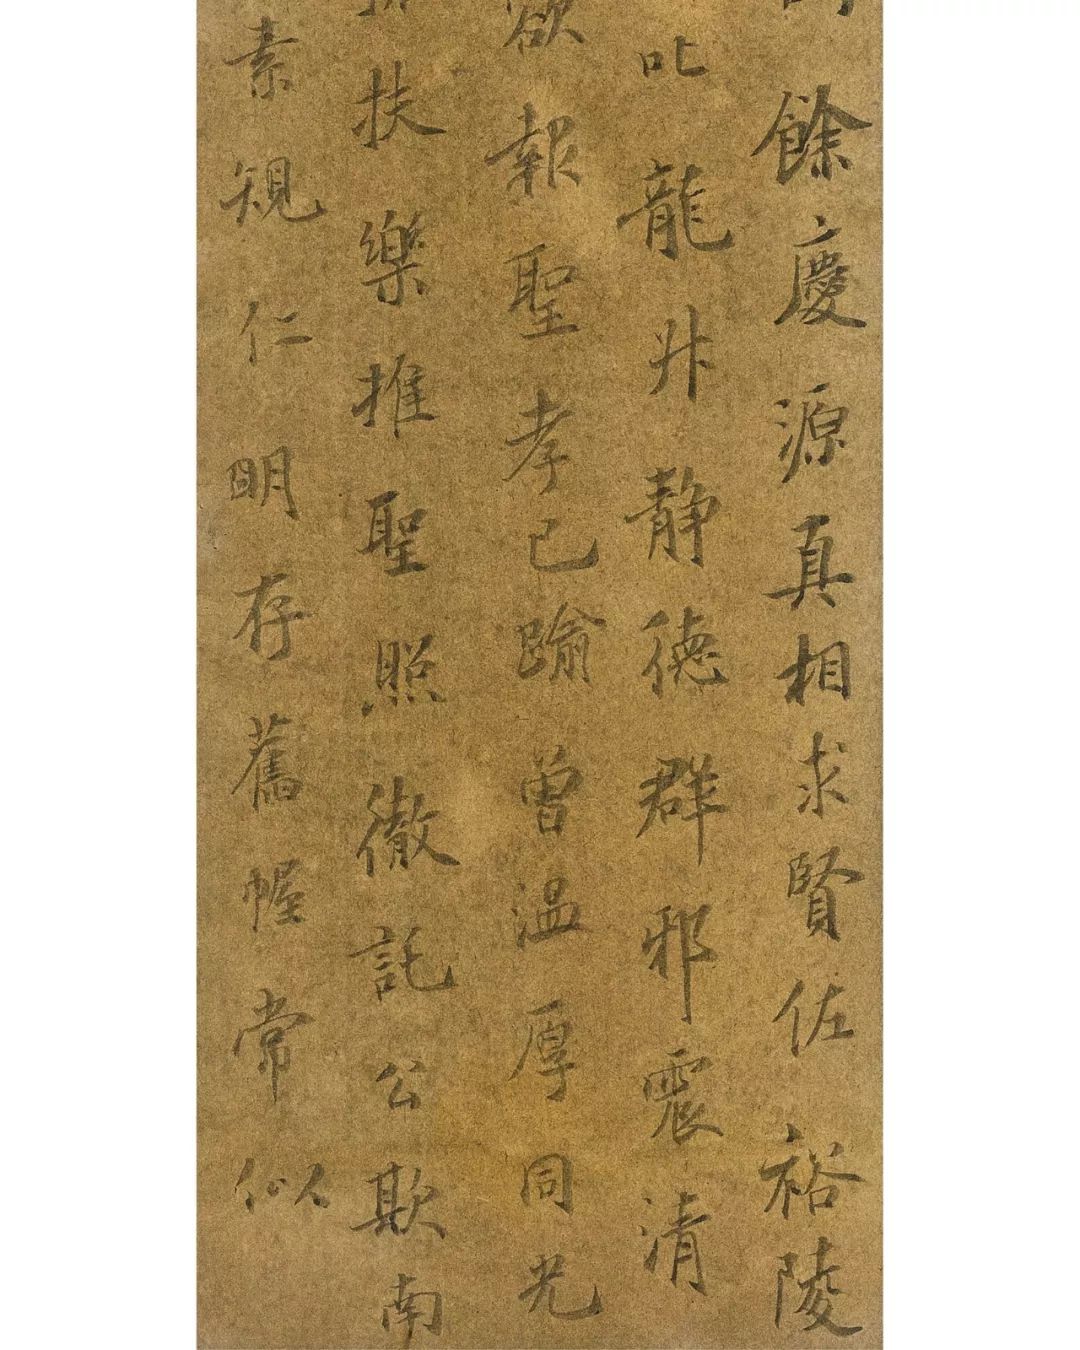 餘慶源真相求賢佐裕陵
叱龍升靜德群邪震清
欲報聖孝已踰曾溫厚同光
扶樂推聖照徹託公欺南
素規仁明存舊幄常似